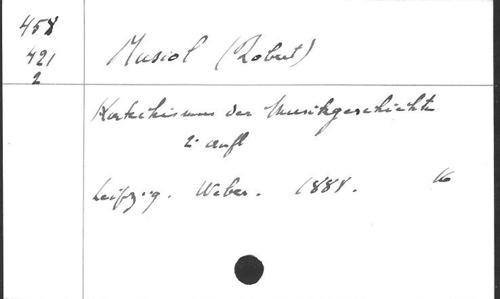 458
421
2
Musiol (Robert)
Katechismus der Musikgeschichte
2e aufl
Leipzig. Weber. 1888. 16